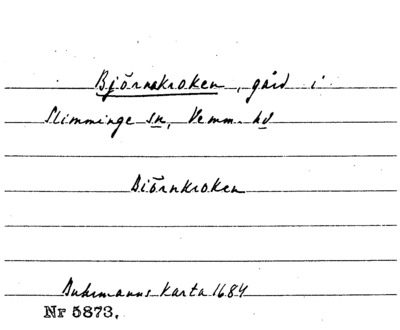 Björnakroken, gård i
Slimminge sn, Vemm. hd
Biörnkroken
Buhrmanns karta 1684
Nr 5873.